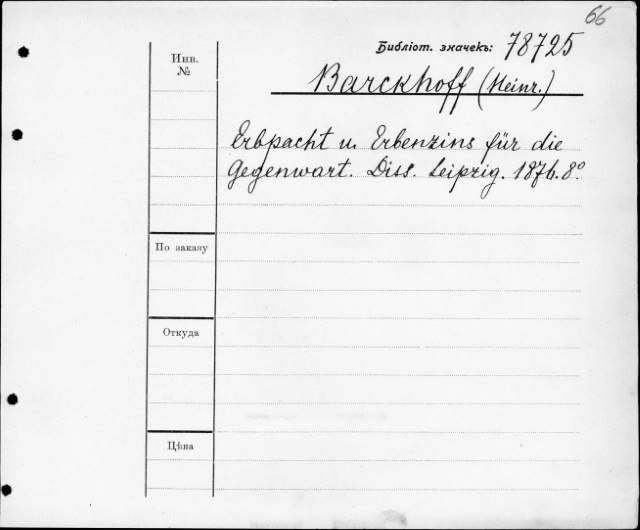 66
Библіот. значекъ: 78725
Инв.
№
Barckhoff (Heinr.)
Erbpacht u. Erbenzins für die
Gegenwart. Diss. Leipzig. 1876. 8º
По заказу
Откуда
Цѣна